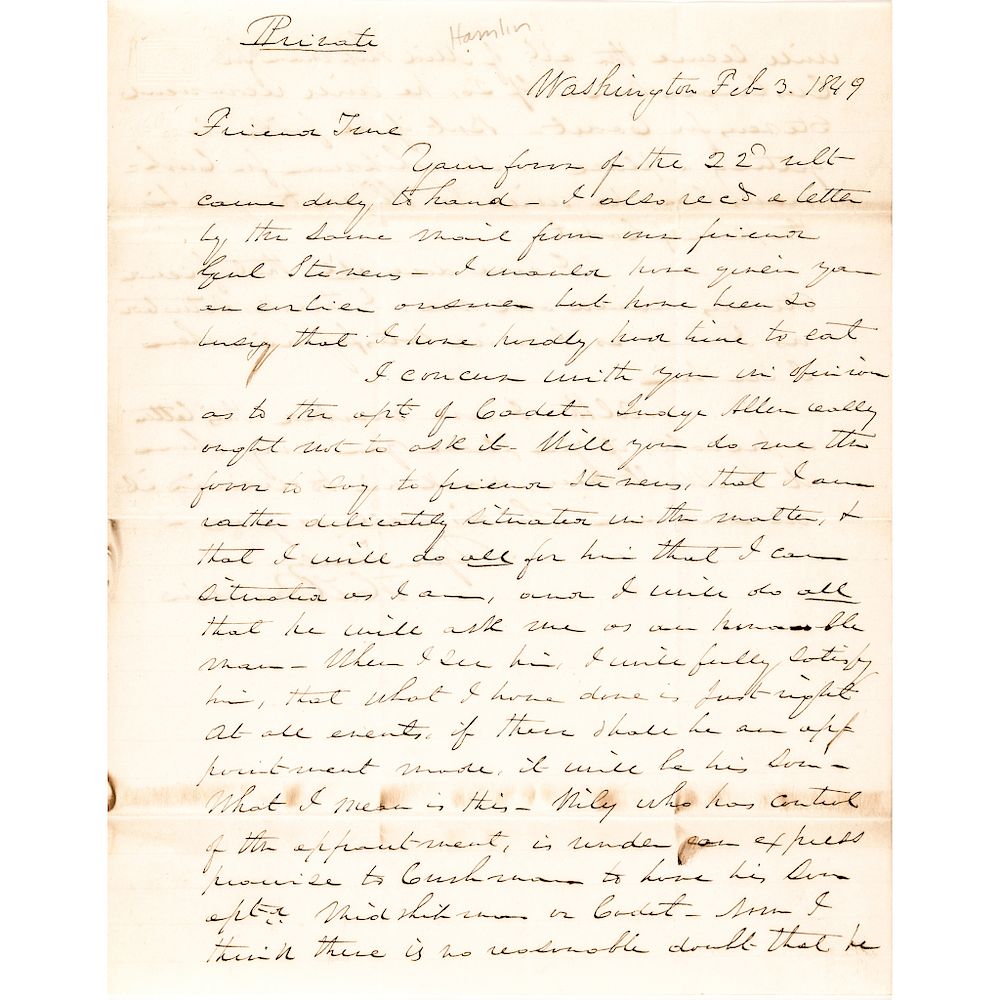 Private
Hamlin
Washington Feb 3. 1849
Friend True
Your favor of the 22d ult
came duly to hand - I also recd a letter
by the same mail from our friend
Genl Stevens - I would have given you
an earlier answer but have been so
busy that I have hardly had time to eat
I concur with you in opinion
as to the apt. of Cadet - Judge Allen really
ought not to ask it - Will you do me the
favor to say to friend Stevens, that I am
rather delicately situated in the matter, &
that I will do all for him that I can
situated as I am, and I will do all
that he will ask me as an honorable
man - When I see him, I will fully satisfy
him, that what I have done is just right
At all events, if there shall be an app
pointment made, it will be his son -
What I mean is this - who has control
of the appointment, is under an express
promise to Cushman to have his son
aptd. Midshipman or Cadet - Now I
think there is no reasonable doubt that he